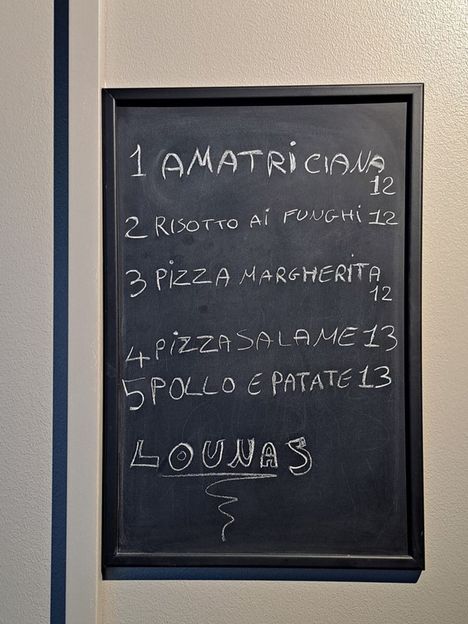 1 AMATRICIANA
12
2 RISOTTO AI FUNGHI 12
3 PIZZA MARGHERITA
12
4 PIZZA SALAME 13
5 POLLO E PATATE 13
LOUNAS